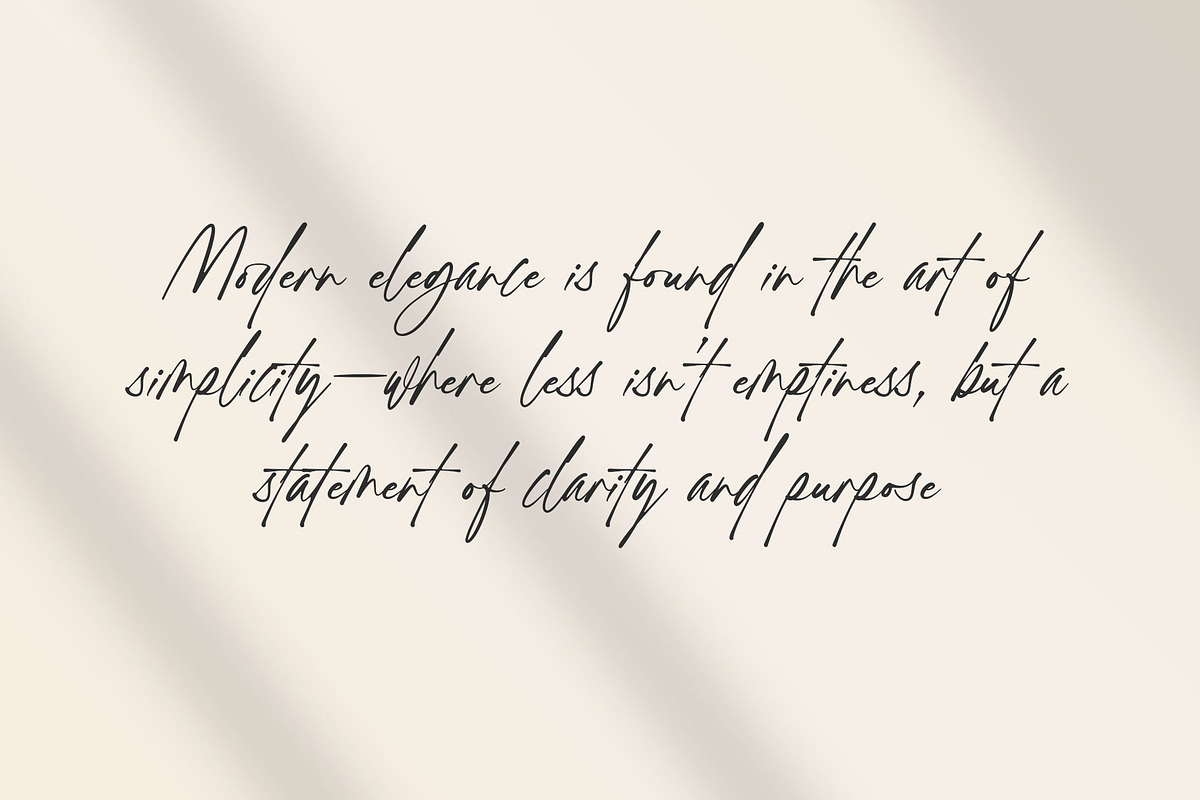 Modern elegance is found in the art of
simplicity—where less isn't emptiness, but a
statement of clarity and purpose